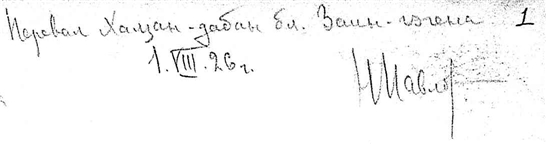 Перевал Халзан-дабан бл. Заин-гэгена 1
1.VIII.26 г.